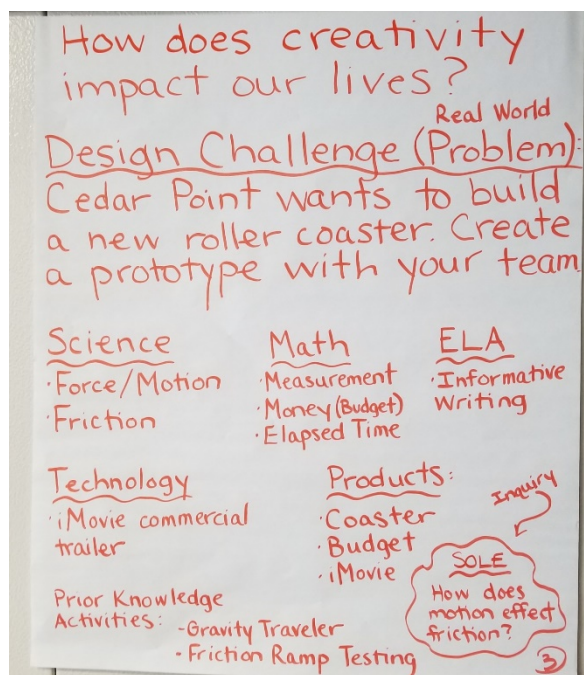 How does creativity
impact our lives?
Real World
Design Challenge (Problem):
Cedar Point wants to build
a new roller coaster. Create
a prototype with your team
Science
·Force/Motion
·Friction
Math
·Measurement
·Money (Budget)
·Elapsed Time
ELA
·Informative
Writing
Technology
·iMovie commercial
trailer
Products:
·Coaster
·Budget
·iMovie
Inquiry
SOLE
How does
motion effect
friction?
Prior Knowledge
Activities: -Gravity Traveler
-Friction Ramp Testing
3